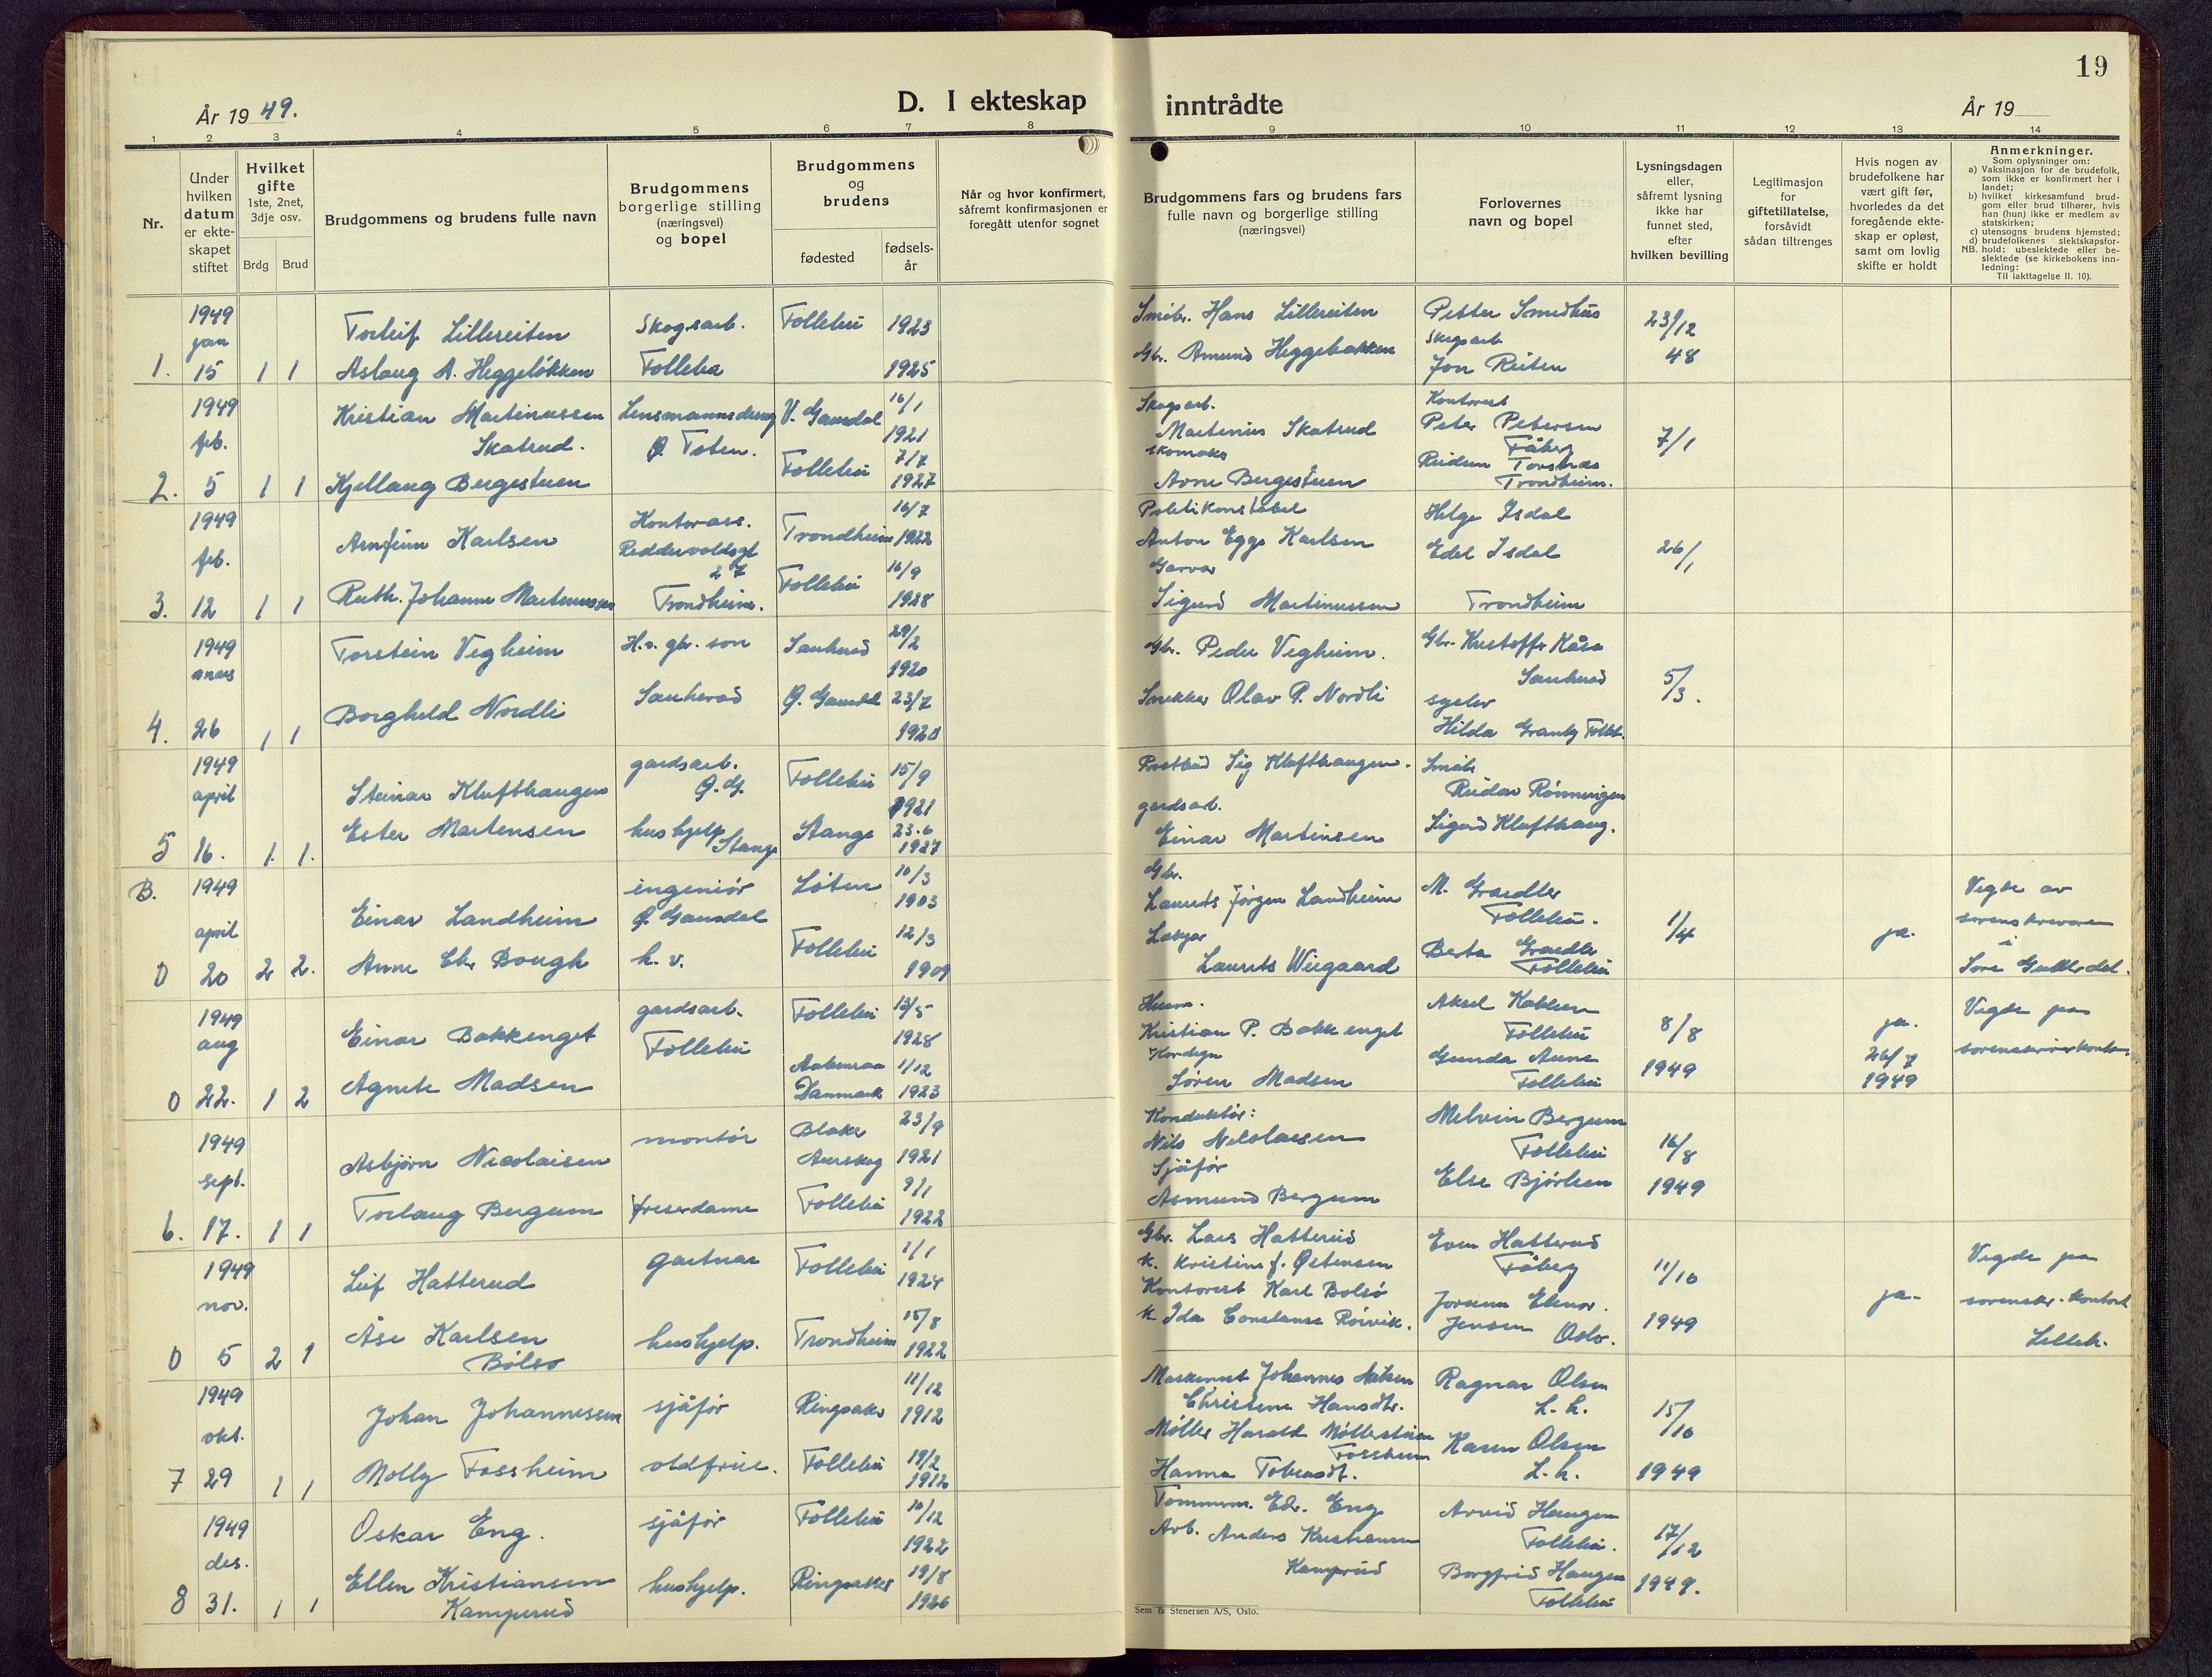 19
År 1949.
D. I ekteskap inntrådte
År 19
1 2 3 4 5 6 7 8 9 10 11 12 13 14
Nr.
Under hvilken datum er ekte-skapet stiftet
Hvilket gifte 1ste, 2net, 3dje osv.
Brdg Brud
Brudgommens og brudens fulle navn
Brudgommens borgerlige stilling (næringsvei) og bopel
Brudgommens og brudens
fødested
fødsels-år
Når og hvor konfirmert, såfremt konfirmasjonen er foregått utenfor sognet
Brudgommens fars og brudens fars fulle navn og borgerlige stilling (næringsvei)
Forlovernes navn og bopel
Lysningsdagen eller, såfremt lysning ikke har funnet sted, efter hvilken bevilling
Legitimasjon for giftetillatelse, forsåvidt sådan tiltrenges
Hvis nogen av brudefolkene har vært gift før, hvorledes da det foregående ekte-skap er opløst, samt om lovlig skifte er holdt
Anmerkninger.
Som oplysninger om:
a) Vaksinasjon for de brudefolk, som ikke er konfirmert her i landet;
b) hvilket kirkesamfund brud-gom eller brud tilhører, hvis han (hun) ikke er medlem av statskirken;
c) utensogns brudens hjemsted;
d) brudefolkenes slektskapsfor-
NB. hold: ubeslektede eller be-slektede (se kirkebokens inn-ledning:
Til iakttagelse II. 10).
1. 1949 jan 15 1 1
Torleif Lillereiten Skogsarb. Follebu 1923
Aslaug A. Heggeløkken Follebu 1925
Småbr. Hans Lillereiten Petter Smedhus 23/12
Gbr. Amund Heggebakken Skogsarb. Jon Reiten 48
2. 1949 feb. 5 1 1
Kristian Martinussen Skatrud. Lensmannsdreng Ø. Toten. V. Gausdal 16/1 1921
Kjellaug Bergestuen Follebu 7/7 1927
Skogsarb. Martinus Skatrud Kontorist Peter Petersen Fåberg 7/1
skomaker Arne Bergestuen Reidun Trondheim.
3. 1949 feb. 12 1 1
Arnfinn Karlsen Kontorass. 27 Trondheim. Trondheim 16/7 1922
Ruth. Johanne Martinussen Follebu 16/9 1928
Politikonstabel Anton Egge Karlsen Helge Isdal 26/1
Garver Sigurd Martinussen Edel Isdal Trondheim
4. 1949 mars 26 1 1
Torstein Vegheim H.v. gbr. son Sauherad 29/2 1920
Borghild Nordli Sauherad Ø. Gausdal 23/7 1920
Gbr. Peder Vegheim. Gbr. Kristoffer Kåsa Sauherad 5/3.
Snekker Olav P. Nordli Hilda Granly Follebu.
5 1949 april 16. 1. 1.
Steinar Klufthaugen gardsarb. Ø.G. Follebu 15/9 1921
Ester Martensen hushjelp Stange Stange 23.6 1927
Postbud Sig Klufthaugen. Småbr Reidar Rønningen
gardsarb. Einar Martinsen Sigurd Klufthaug.
B. 0 1949 april 20 2 2.
Einar Landheim ingeniør Ø. Gausdal Løten 10/3 1903
Anne Chr Bough h. v. Follebu 12/3 1909
Gbr. Laurits Jørgen Landheim M. Follebu. 1/4 ja.
Laurits Wiegaard Berta Follebu
Vigde av sorenskrivaren i
0 1949 aug 22. 1 2
Einar Bakkenget gardsarb. Follebu Follebu 13/5 1928
Agnete Madsen Aabenraa Danmark 1/12 1923
Kristian P. Bakkenget Aksel Follebu 8/8 1949 ja. 26/7 1949
Søren Madsen Gunda Aune Follebu
Vigde på sorenskriverkontor.
6. 1949 sept. 17. 1 1
Asbjørn Nicolaisen montør Blaker Aurskog 23/9 1921
Torlaug Bergum friserdame Follebu 9/1 1922
Konduktør: Nils Nicolaisen Melvin Bergum Follebu 16/8 1949
Sjåfør Asmund Bergum Else Bjørlien
0 1949 nov. 5 2 1
Leif Hatterud gartnar Follebu 1/1 1924
Åse Karlsen Bølsø hushjelp. Trondheim 15/8 1922
Gbr. Lars Hatterud k. Kristine f. Østensen Even Hatterud Fåberg 11/10 1949 ja.
Kontorist Karl Bolsø k. Ida Constanse Rørvik. Jorunn Elenor. Jensen Oslo.
Vigde på sorenskr. kontoret Lilleh.
7 1949 okt. 29 1 1
Johan Johannessen sjåfør Ringsaker 11/12 1912
Molly Fossheim Follebu 19/2 1912
Maskinist Johannes Christine Hansdtr. Ragnar Olsen L. h. 15/10 1949
Møller Harald Møllerstuen Fossheim Karen Olsen L. h.
Hanna
8 1949 des. 31. 1 1
Oskar Eng. sjåfør Follebu 10/12 1922
Ellen Kristiansen Kamperud hushjelp. Ringsaker 19/8 1926
Tømmerm. Edv. Eng Arvid Haugen Follebu. 17/12 1949.
Arb. Anders Kristiansen Kamprud Borgfrid Haugen Follebu
Sem & Stenersen A/S, Oslo.